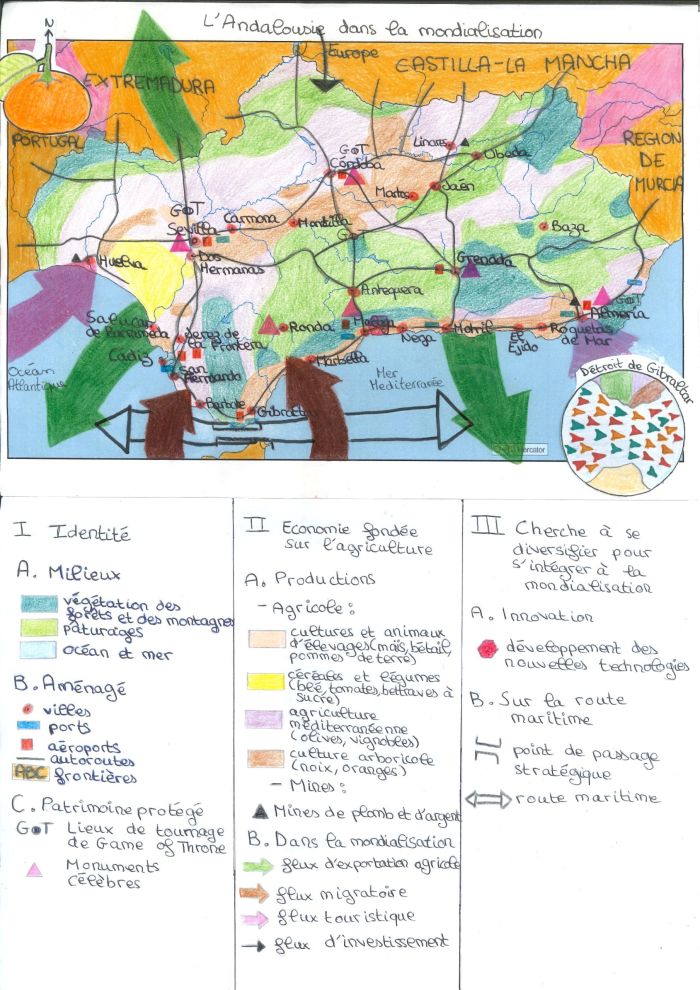 L'Andalousie dans la mondialisation
N
Europe
EXTREMADURA
CASTILLA-LA MANCHA
PORTUGAL
REGION
DE
MURCIA
GOT
Córdoba
Linares
Ubeda
Jaén
Martos
GOT
Sevilla
Carmona
Montilla
GOT
Baza
Huelva
Dos
Hermanas
Grenada
Antequera
GOT
Almería
Salucar
de Barrumeda
Jerez de
la Frontera
Ronda
Malaga
Nega
Motril
El
Ejido
Roquetas
de Mar
Cadiz
San
Fernando
Marbella
Océan
Atlantique
Mer
Mediterranée
Détroit de Gibraltar
Barbate
Gibraltar
Mercator
I Identité
A. Milieux
végétation des
forêts et des montagnes
pâturages
océan et mer
B. Aménagé
villes
ports
aéroports
autoroutes
ABC frontières
C. Patrimoine protégé
GOT Lieux de tournage
de Game of Throne
Monuments
célèbres
II Economie fondée
sur l'agriculture
A. Productions
- Agricole :
cultures et animaux
d'élevages (maïs, bétail,
pommes de terre)
céréales et légumes
(blé, tomates, betraves à
sucre)
agriculture
méditerranéenne
(olives, vignobles)
culture arboricole
(noix, oranges)
- Mines :
Mines de plomb et d'argent
B. Dans la mondialisation
flux d'exportation agricole
flux migratoire
flux touristique
flux d'investissement
III Cherche à se
diversifier pour
s'intégrer à la
mondialisation
A. Innovation
développement des
nouvelles technologies
B. Sur la route
maritime
point de passage
stratégique
route maritime